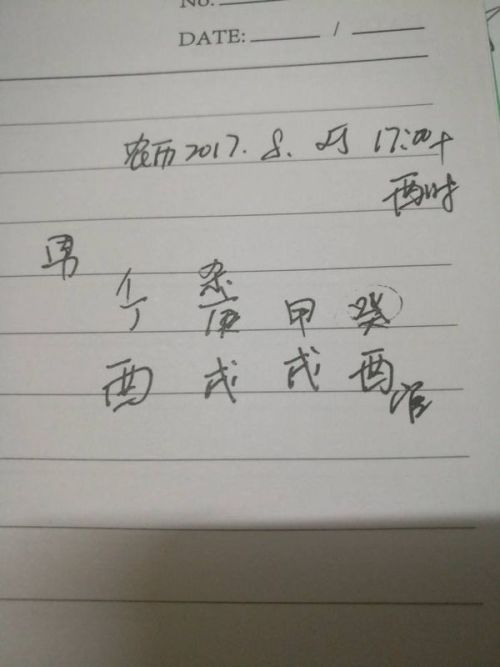 No.
DATE: /
农历2017.8.25 17:00+
酉时
男
杀
丁 庚 甲 癸
酉 戌 戌 酉